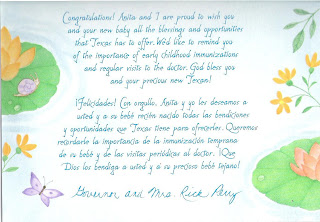 Congratulations! Anita and I are proud to wish you
and your new baby all the blessings and opportunities
that Texas has to offer. We'd like to remind you
of the importance of early childhood immunizations
and regular visits to the doctor. God bless you
and your precious new Texan!
¡Felicidades! Con orgullo, Anita y yo les deseamos a
usted y a su bebé recién nacido todas las bendiciones
y oportunidades que Texas tiene para ofrecerles. Queremos
recordarle la importancia de la inmunización temprana
de su bebé y de las visitas periódicas al doctor. ¡Que
Dios los bendiga a usted y a su precioso bebé tejano!
Governor and Mrs. Rick Perry